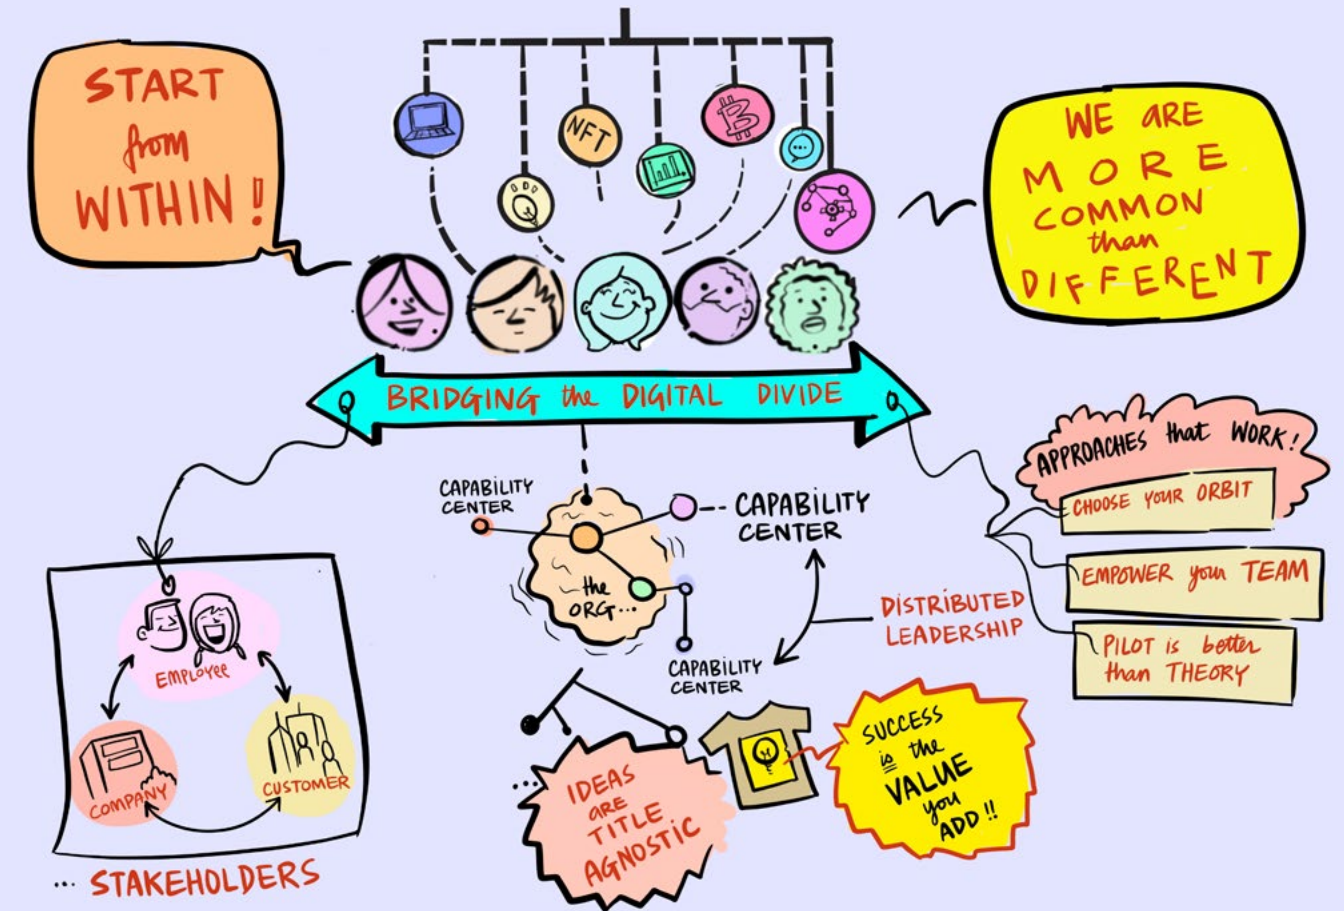 START
from
WITHIN!
NFT
WE ARE
MORE
COMMON
than
DIFFERENT
BRIDGING the DIGITAL DIVIDE
APPROACHES that WORK!
CHOOSE YOUR ORBIT
EMPOWER your TEAM
PILOT is better
than THEORY
CAPABILITY
CENTER
CAPABILITY
CENTER
the
ORG...
DISTRIBUTED
LEADERSHIP
CAPABILITY
CENTER
EMPLOYEE
COMPANY
CUSTOMER
... STAKEHOLDERS
...
IDEAS
ARE
TITLE
AGNOSTIC
SUCCESS
is the
VALUE
you
ADD!!